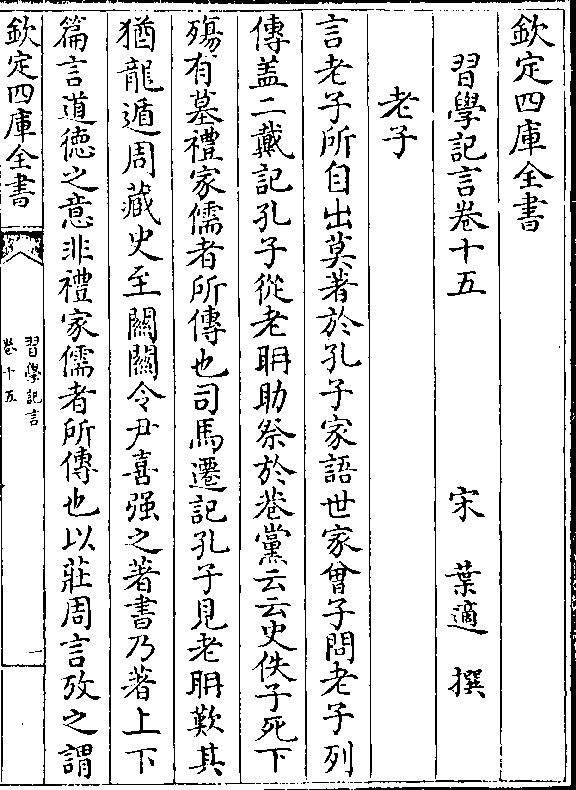 欽定四庫全書
習學記言卷十五　宋　葉適　撰
老子
言老子所自出莫著於孔子家語世家曾子問老子列
傳盖二戴記孔子從老耼助祭於巷黨云云史佚子死下
殤有墓禮家儒者所傳也司馬遷記孔子見老耼歎其
猶龍遁周藏史至關關令尹喜强之著書乃著上下
篇言道德之意非禮家儒者所傳也以莊周言攷之謂
欽定四庫全書
習學記言
卷十五
一